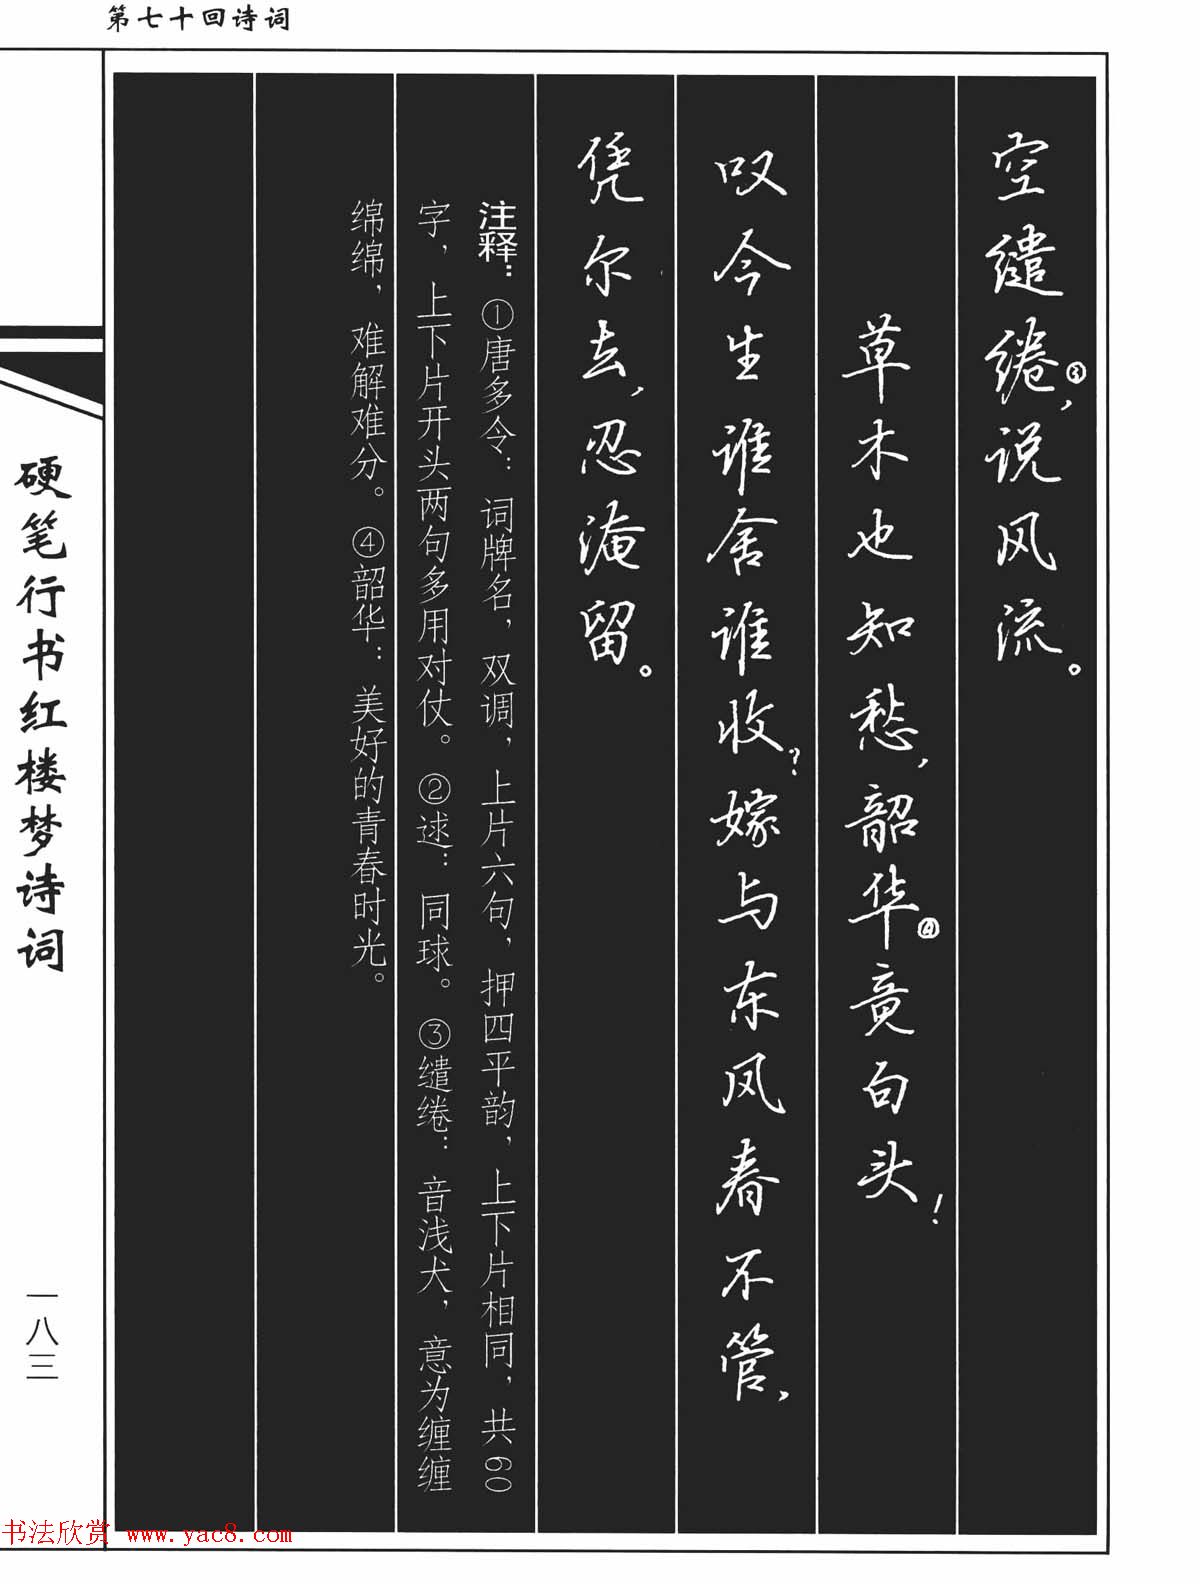 第七十回诗词
空缱绻③,说风流。
草木也知愁,韶华④竟白头!
叹今生谁舍谁收?嫁与东风春不管,
凭尔去,忍淹留。
注释：①唐多令：词牌名，双调，上片六句，押四平韵，上下片相同，共60
字，上下片开头两句多用对仗。②逑：同球。③缱绻：音浅犬，意为缠缠
绵绵，难解难分。④韶华：美好的青春时光。
硬笔行书红楼梦诗词
一八三
书法欣赏 www.yac8.com